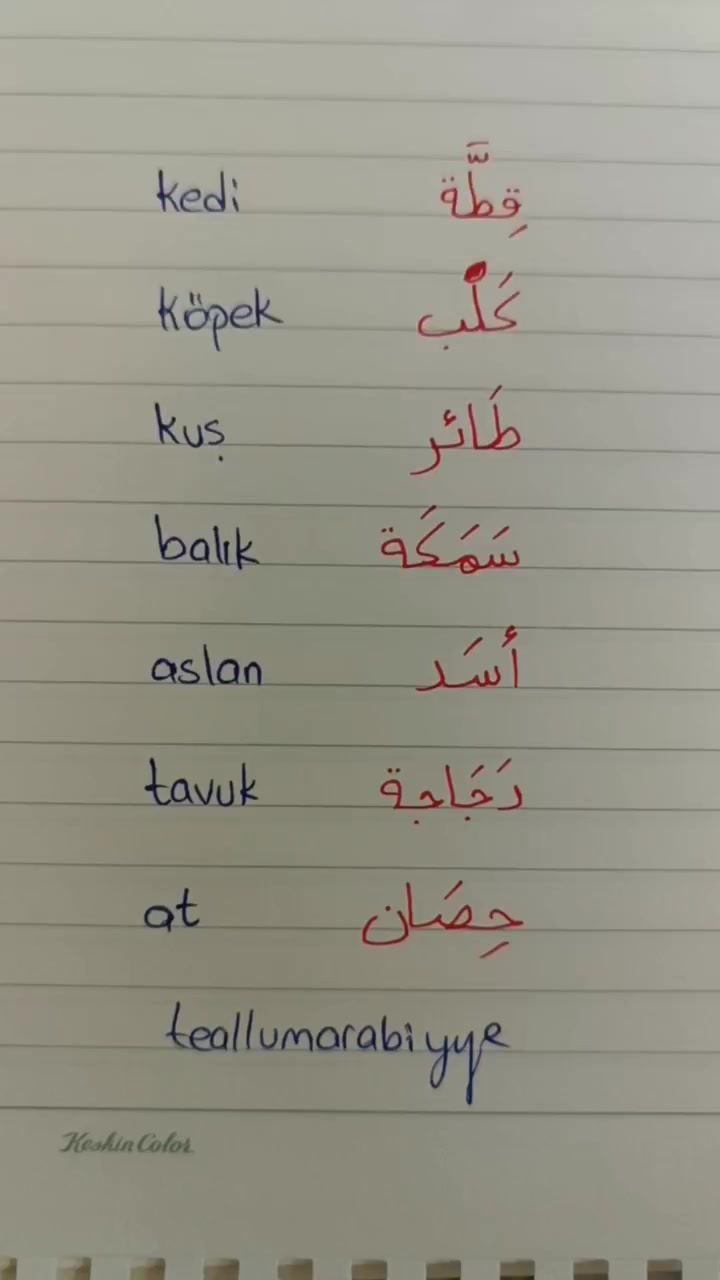 kedi قِطَّة
köpek كَلْب
kuş طَائر
balık سَمَكَة
aslan أسَد
tavuk دَجَاجة
at حِصَان
teallumarabiyye
KeskinColor